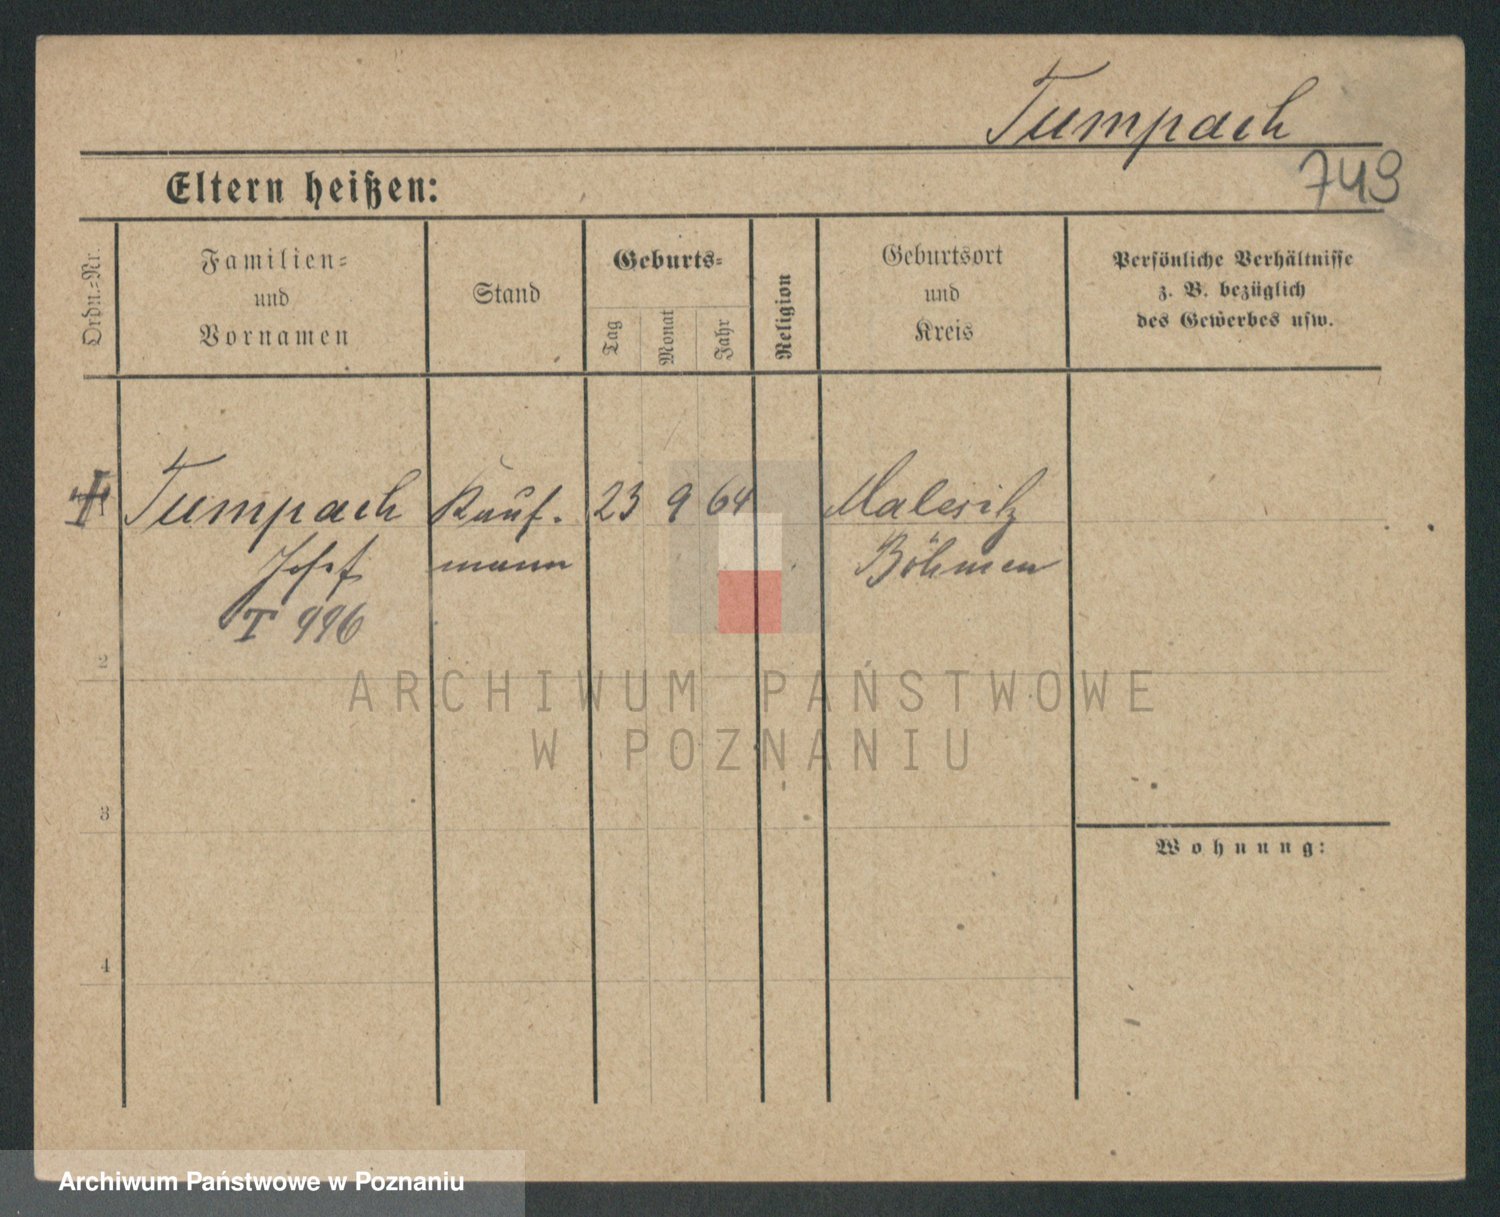 Tumpach
749
Eltern heißen:
Ordn.-Nr.
Familien-
und
Vornamen
Stand
Geburts-
Tag
Monat
Jahr
Religion
Geburtsort
und
Kreis
Persönliche Verhältnisse
z. B. bezüglich
des Gewerbes usw.
Tumpach Kauf- 23 9 64 Malesitz
Josef mann Böhmen
T 996
2
ARCHIWUM PAŃSTWOWE
W POZNANIU
3
Wohnung:
4
Archiwum Państwowe w Poznaniu